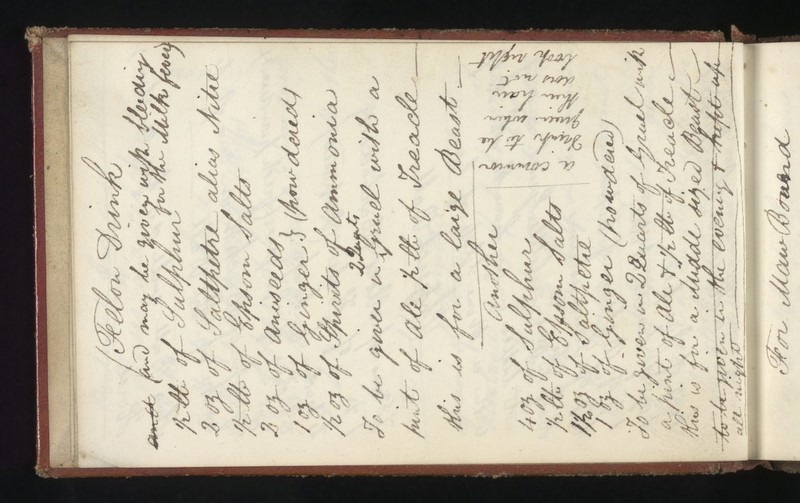 (Felon Drink
and (and may be given with bleeding
for the Milk fever)
½ lb of Sulphur
2 oz of Saltpetre alias Nitre
½ lb of Epsom Salts
2 oz of Aniseeds }
1 oz of Ginger } (powdered)
½ oz of Spirits of Ammonia
To be given in 2 Quarts Gruel with a
pint of ale ½ lb of Treacle
this is for a large Beast
Another
a common
Drink to be
given when
their hair
does not
look right
4 oz of Sulphur
½ lb of Epsom Salts
1½ oz of Saltpetre
1 oz of Ginger (powdered)
To be given in 2 Quarts of Gruel with
a pint of ale & ½ lb of Treacle
this is for a middle sized Beast
to be given in the evening & kept up
all night
For Maw Bound